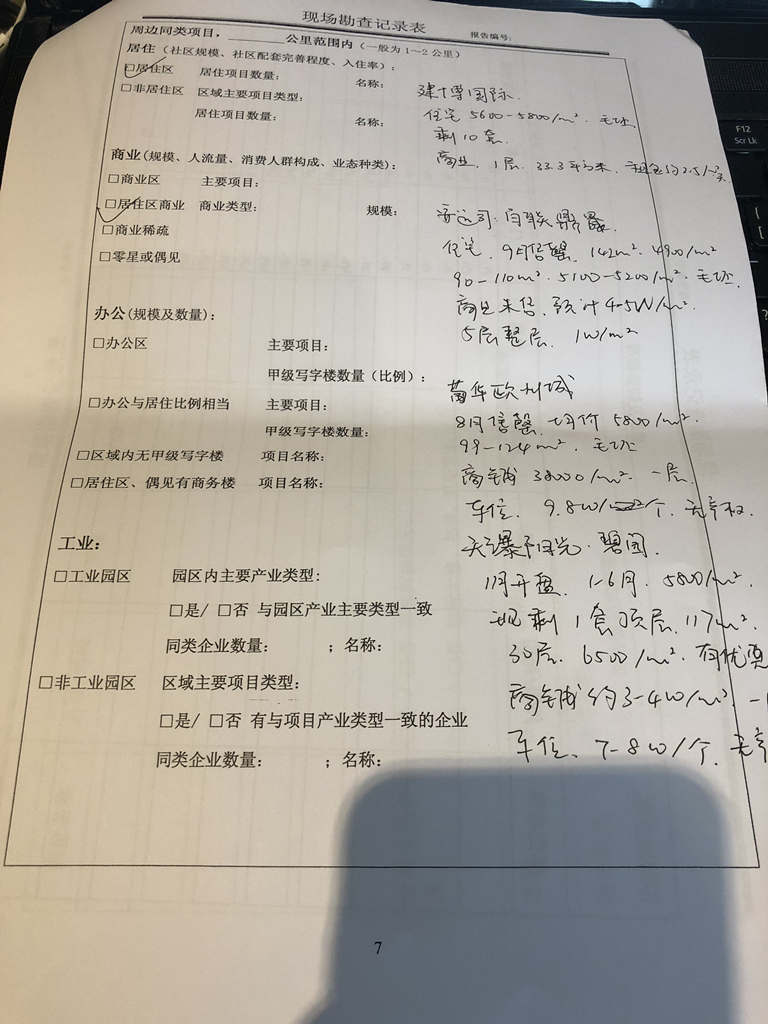 现场勘查记录表
报告编号:
周边同类项目,______公里范围内（一般为 1~2 公里）
居住（社区规模、社区配套完善程度、入住率）:
□居住区 居住项目数量: 名称:
建博国际.
□非居住区 区域主要项目类型:
住宅 5600-5800/m². 毛坯.
居住项目数量: 名称:
剩10套.
商业(规模、人流量、消费人群构成、业态种类):
商业. 1层. 33.3平方米. 租金约2.5/m²天.
□商业区 主要项目:
□居住区商业 商业类型: 规模:
□商业稀疏
住宅. 9月售罄. 142m². 4900/m²
□零星或偶见
90-110m². 5100-5200/m². 毛坯.
商业未售. 预计4-5W/m².
办公(规模及数量):
5层整层. 1W/m²
□办公区 主要项目:
甲级写字楼数量（比例）:
欧州城
□办公与居住比例相当 主要项目:
8月售罄. 均价 5800/m².
甲级写字楼数量:
99-124m². 毛坯
□区域内无甲级写字楼 项目名称:
商铺 38000/m². 一层.
□居住区、偶见有商务楼 项目名称:
车位. 9.8W/个. 无产权.
工业:
阳光·碧园.
□工业园区 园区内主要产业类型:
11月开盘. 1-6月. 5800/m².
□是/ □否 与园区产业主要类型一致
现剩1套顶层. 117m².
同类企业数量: ；名称:
30层. 6500/m². 有优惠
□非工业园区 区域主要项目类型:
商铺约3-4W/m².
□是/ □否 有与项目产业类型一致的企业
车位. 7-8W/个. 无产
同类企业数量: ；名称:
7
F12
Scr Lk